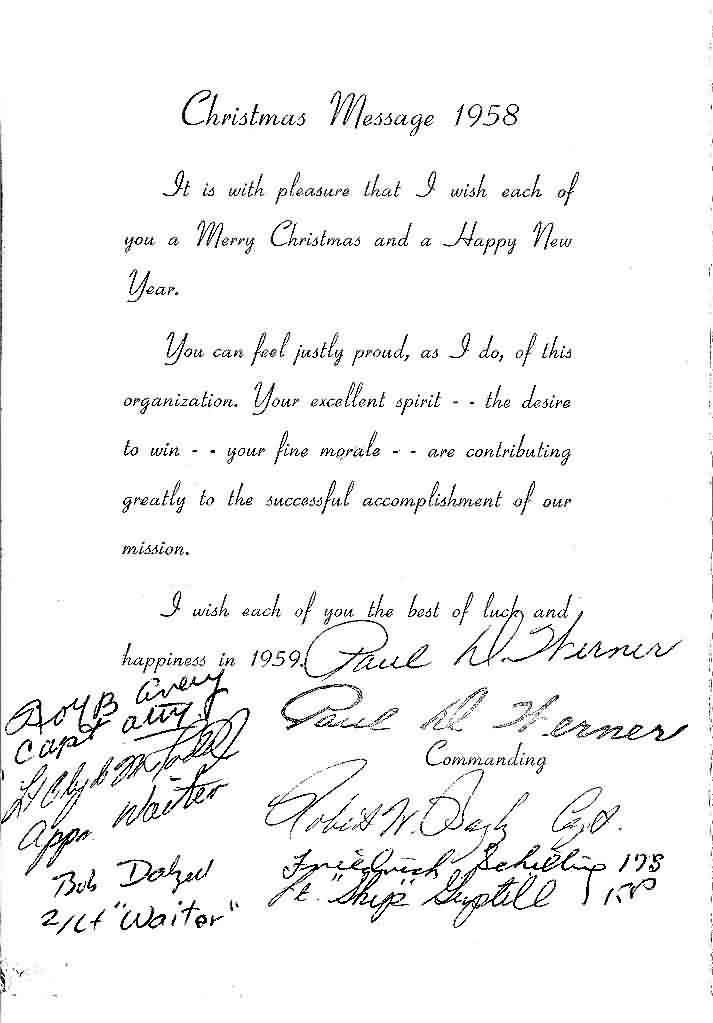 Christmas Message 1958
It is with pleasure that I wish each of
you a Merry Christmas and a Happy New
Year.
You can feel justly proud, as I do, of this
organization. Your excellent spirit - - the desire
to win - - your fine morale - - are contributing
greatly to the successful accomplishment of our
mission.
I wish each of you the best of luck and
happiness in 1959.
Paul D. Werner
Paul D. Werner
Commanding
Roy B Avery
Capt Arty
Lt Clyde M
Appr. Waiter
Robert W. Capt.
Friedrich Schilling
Bob
2/Lt "Waiter"
Lt. "Skip" Guptill